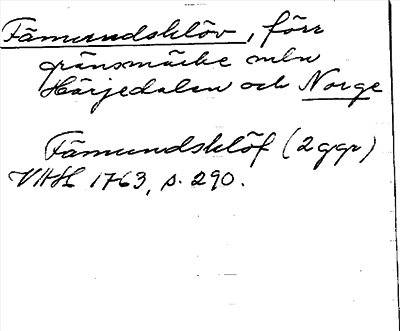 Fämundsklöv, förr
gränsmärke mln
Härjedalen och Norge
Fämundsklöf (2 ggr)
VAH 1763, s. 290.